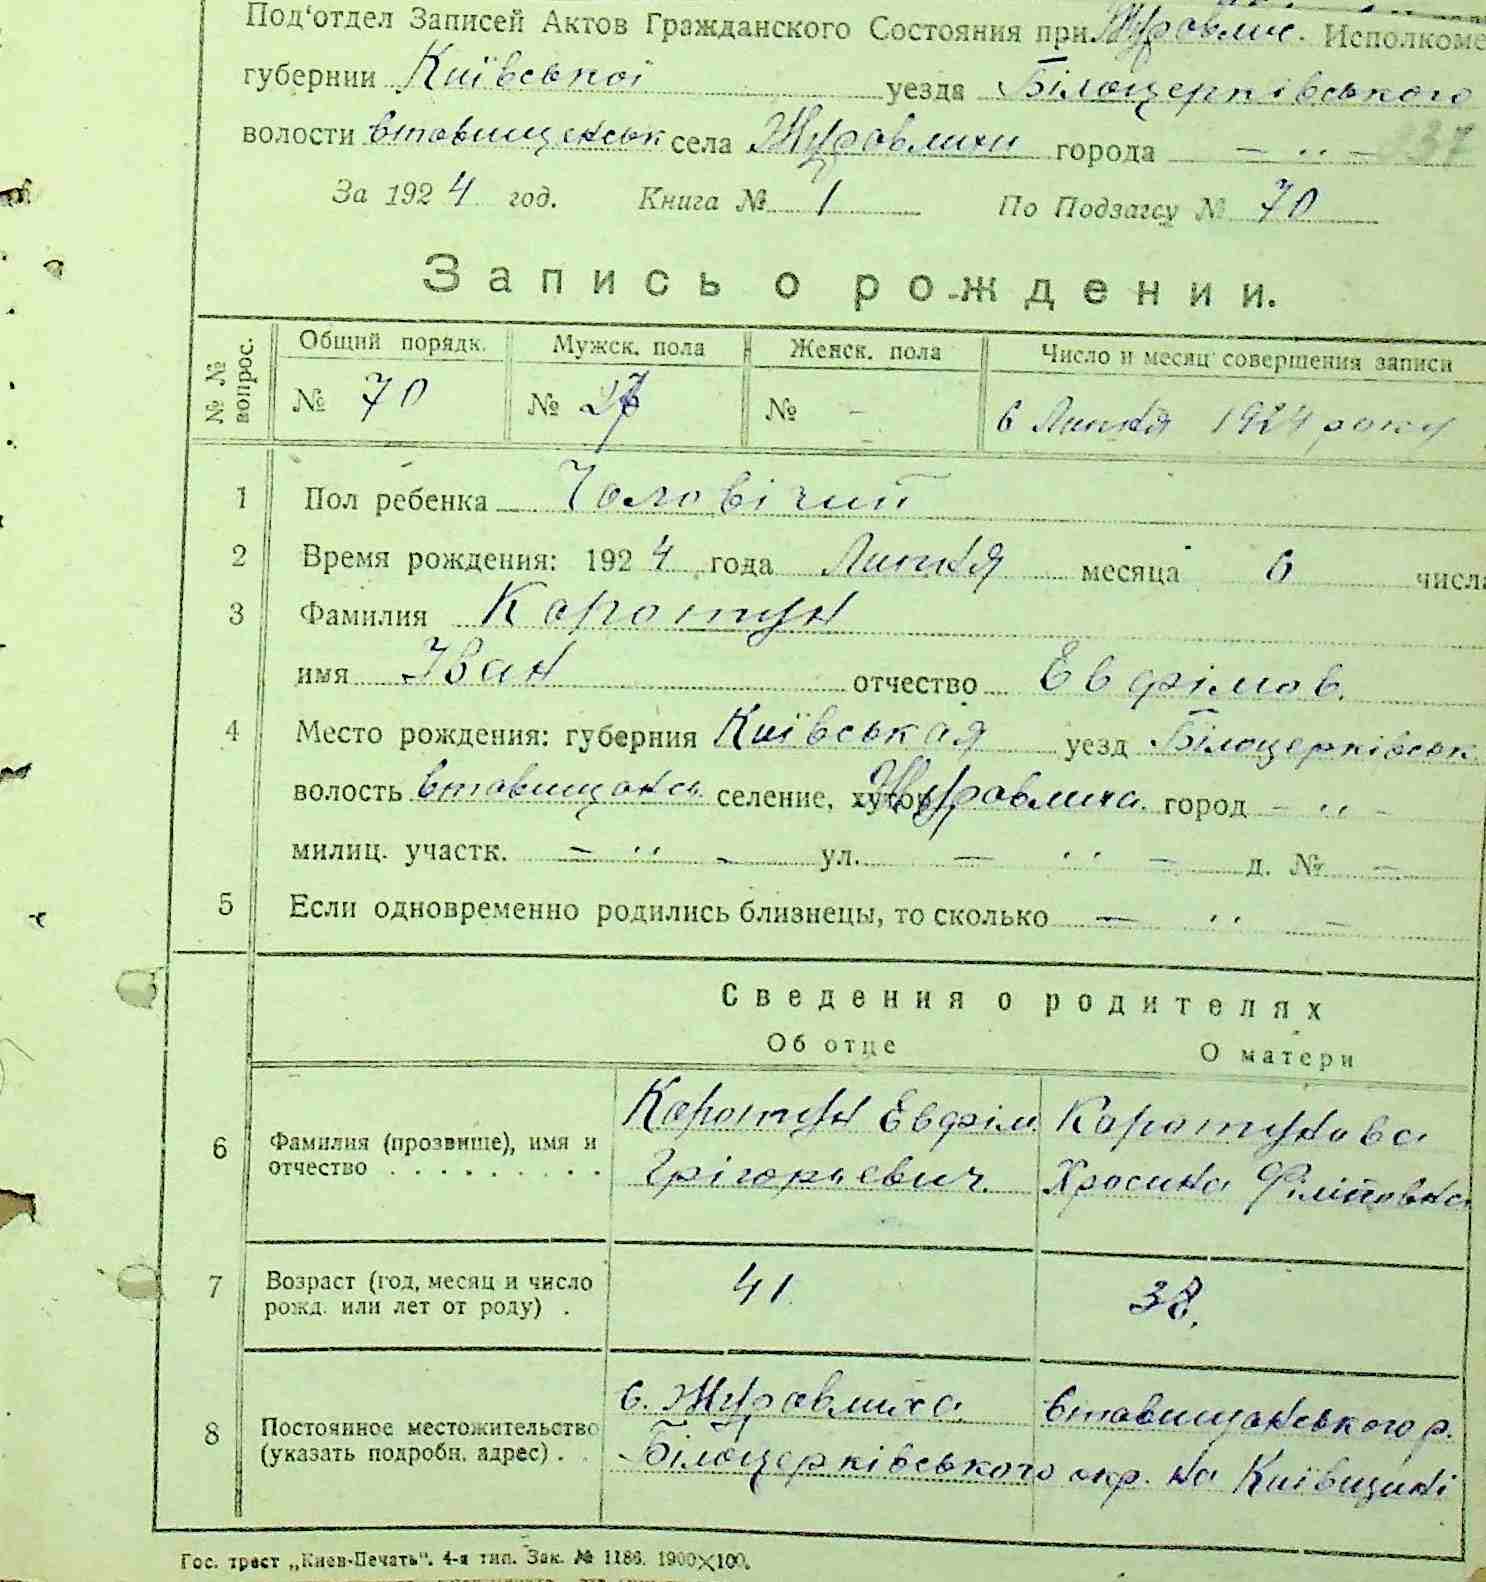 Под'отдел Записей Актов Гражданского Состояния при Журавлис. Исполкоме
губернии Київської уезда Білоцерківського
волости Ставищенськ села Журавлихи города — „ — 337
За 1924 год. Книга № 1 По Подзагсу № 70
Запись о рождении.
№ № вопрос. Общий порядк. Мужск. пола Женск. пола Число и месяц совершения записи
№ 70 № 27 № - 6 Липня 1924 року
1 Пол ребенка Чоловічий
2 Время рождения: 1924 года Липня месяца 6 числа
3 Фамилия Каротун
имя Іван отчество Евфімов.
4 Место рождения: губерния Київськая уезд Білоцерківськ.
волость Ставищанск. селение, хутор Журавлиха город — „ —
милиц. участк. — „ — ул. — „ — д. № —
5 Если одновременно родились близнецы, то сколько — „ —
Сведения о родителях
Об отце О матери
6 Фамилия (прозвище), имя и отчество Каротун Евфім Грігорьевич. Каротунова Хросина Філіповна
7 Возраст (год, месяц и число рожд. или лет от роду) . 41. 38.
8 Постоянное местожительство (указать подробн. адрес) . . с. Журавлиха Ставищанського р.
Білоцерківського окр. на Київщині
Гос. трест „Киев-Печать". 4-я тип. Зак. № 1186. 1900×100.